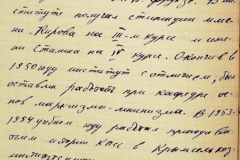 ституте получал стипендии име-
ни Кирова на III-м курсе и име-
ни Сталина на IV курсе. Окончив в
1950 году институт с отличием, был
оставлен работать при кафедре ос-
нов марксизма-ленинизма. В 1953-
1954 учебном году работал преподава-
телем истории КПСС в Крымском